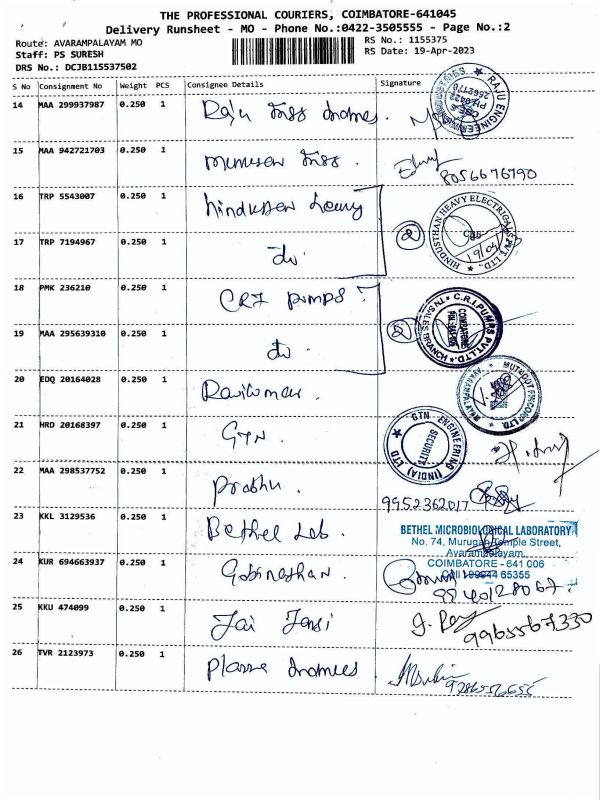 THE PROFESSIONAL COURIERS, COIMBATORE-641045
Delivery Runsheet - MO - Phone No.:0422-3505555 - Page No.:2
Route: AVARAMPALAYAM MO
RS No.: 1155375
Staff: PS SURESH
RS Date: 19-Apr-2023
DRS No.: DCJB115537502
S No Consignment No Weight PCS Consignee Details Signature
14 MAA 299937987 0.250 1 Raju
RAJU ENGINEERING
15 MAA 942721703 0.250 1
8056676790
16 TRP 5543007 0.250 1 hindusan heavy
HINDUSTHAN HEAVY ELECTRICALS PVT. LTD.
17 TRP 7194967 0.250 1 do.
2
18 PMK 236210 0.250 1 CRI pumps
C.R.I.PUMPS PVT.LTD. TN SALES BRANCH
19 MAA 295639310 0.250 1 do.
2
20 EDQ 20164028 0.250 1 Ravikumar.
MUTHOOT FINCORP LTD.
21 HRD 20168397 0.250 1 GTN.
GTN ENGINEERING (INDIA) LTD
SECURITY
22 MAA 298537752 0.250 1 Prabhu.
9952362017
23 KKL 3129536 0.250 1 Bethel Lab.
BETHEL MICROBIOLOGICAL LABORATORY
No. 74, Murugan Temple Street,
Avarampalayam,
COIMBATORE - 641 006
Cell : 99944 65355
24 KUR 694663937 0.250 1 Gobinathan.
9940128067.
25 KKU 474099 0.250 1 Jai
9965567330
26 TVR 2123973 0.250 1